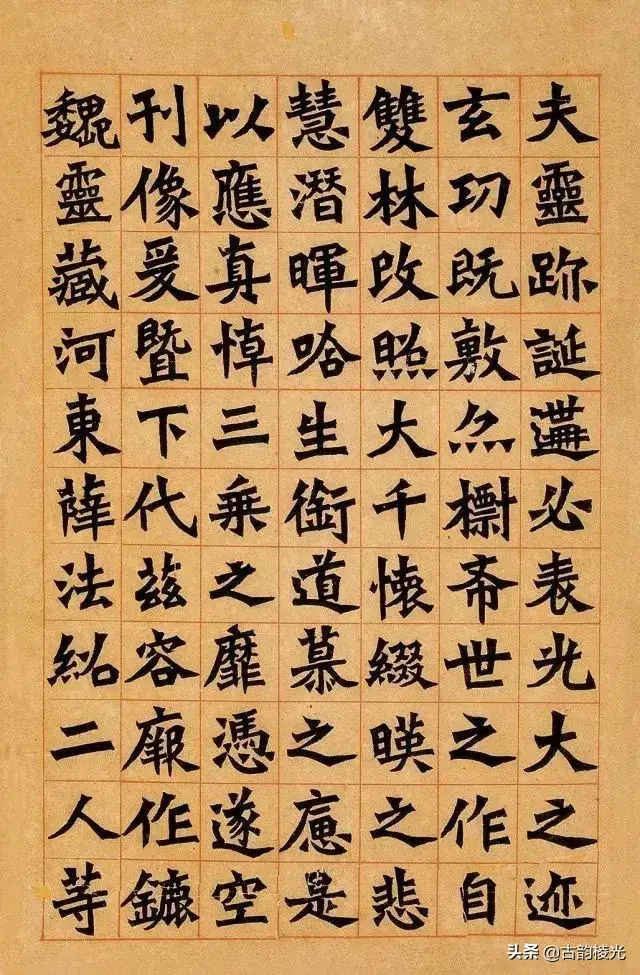 夫靈跡誕遘必表光大之迹
玄功既敷亦標希世之作自
雙林改照大千懷綴暎之悲
慧潛暉唅生銜道慕之慮是
以應真悼三乘之靡憑遂空
刊像爰暨下代茲容厥作鏕
魏靈藏河東薛法紹二人等
头条 @古韵棱光